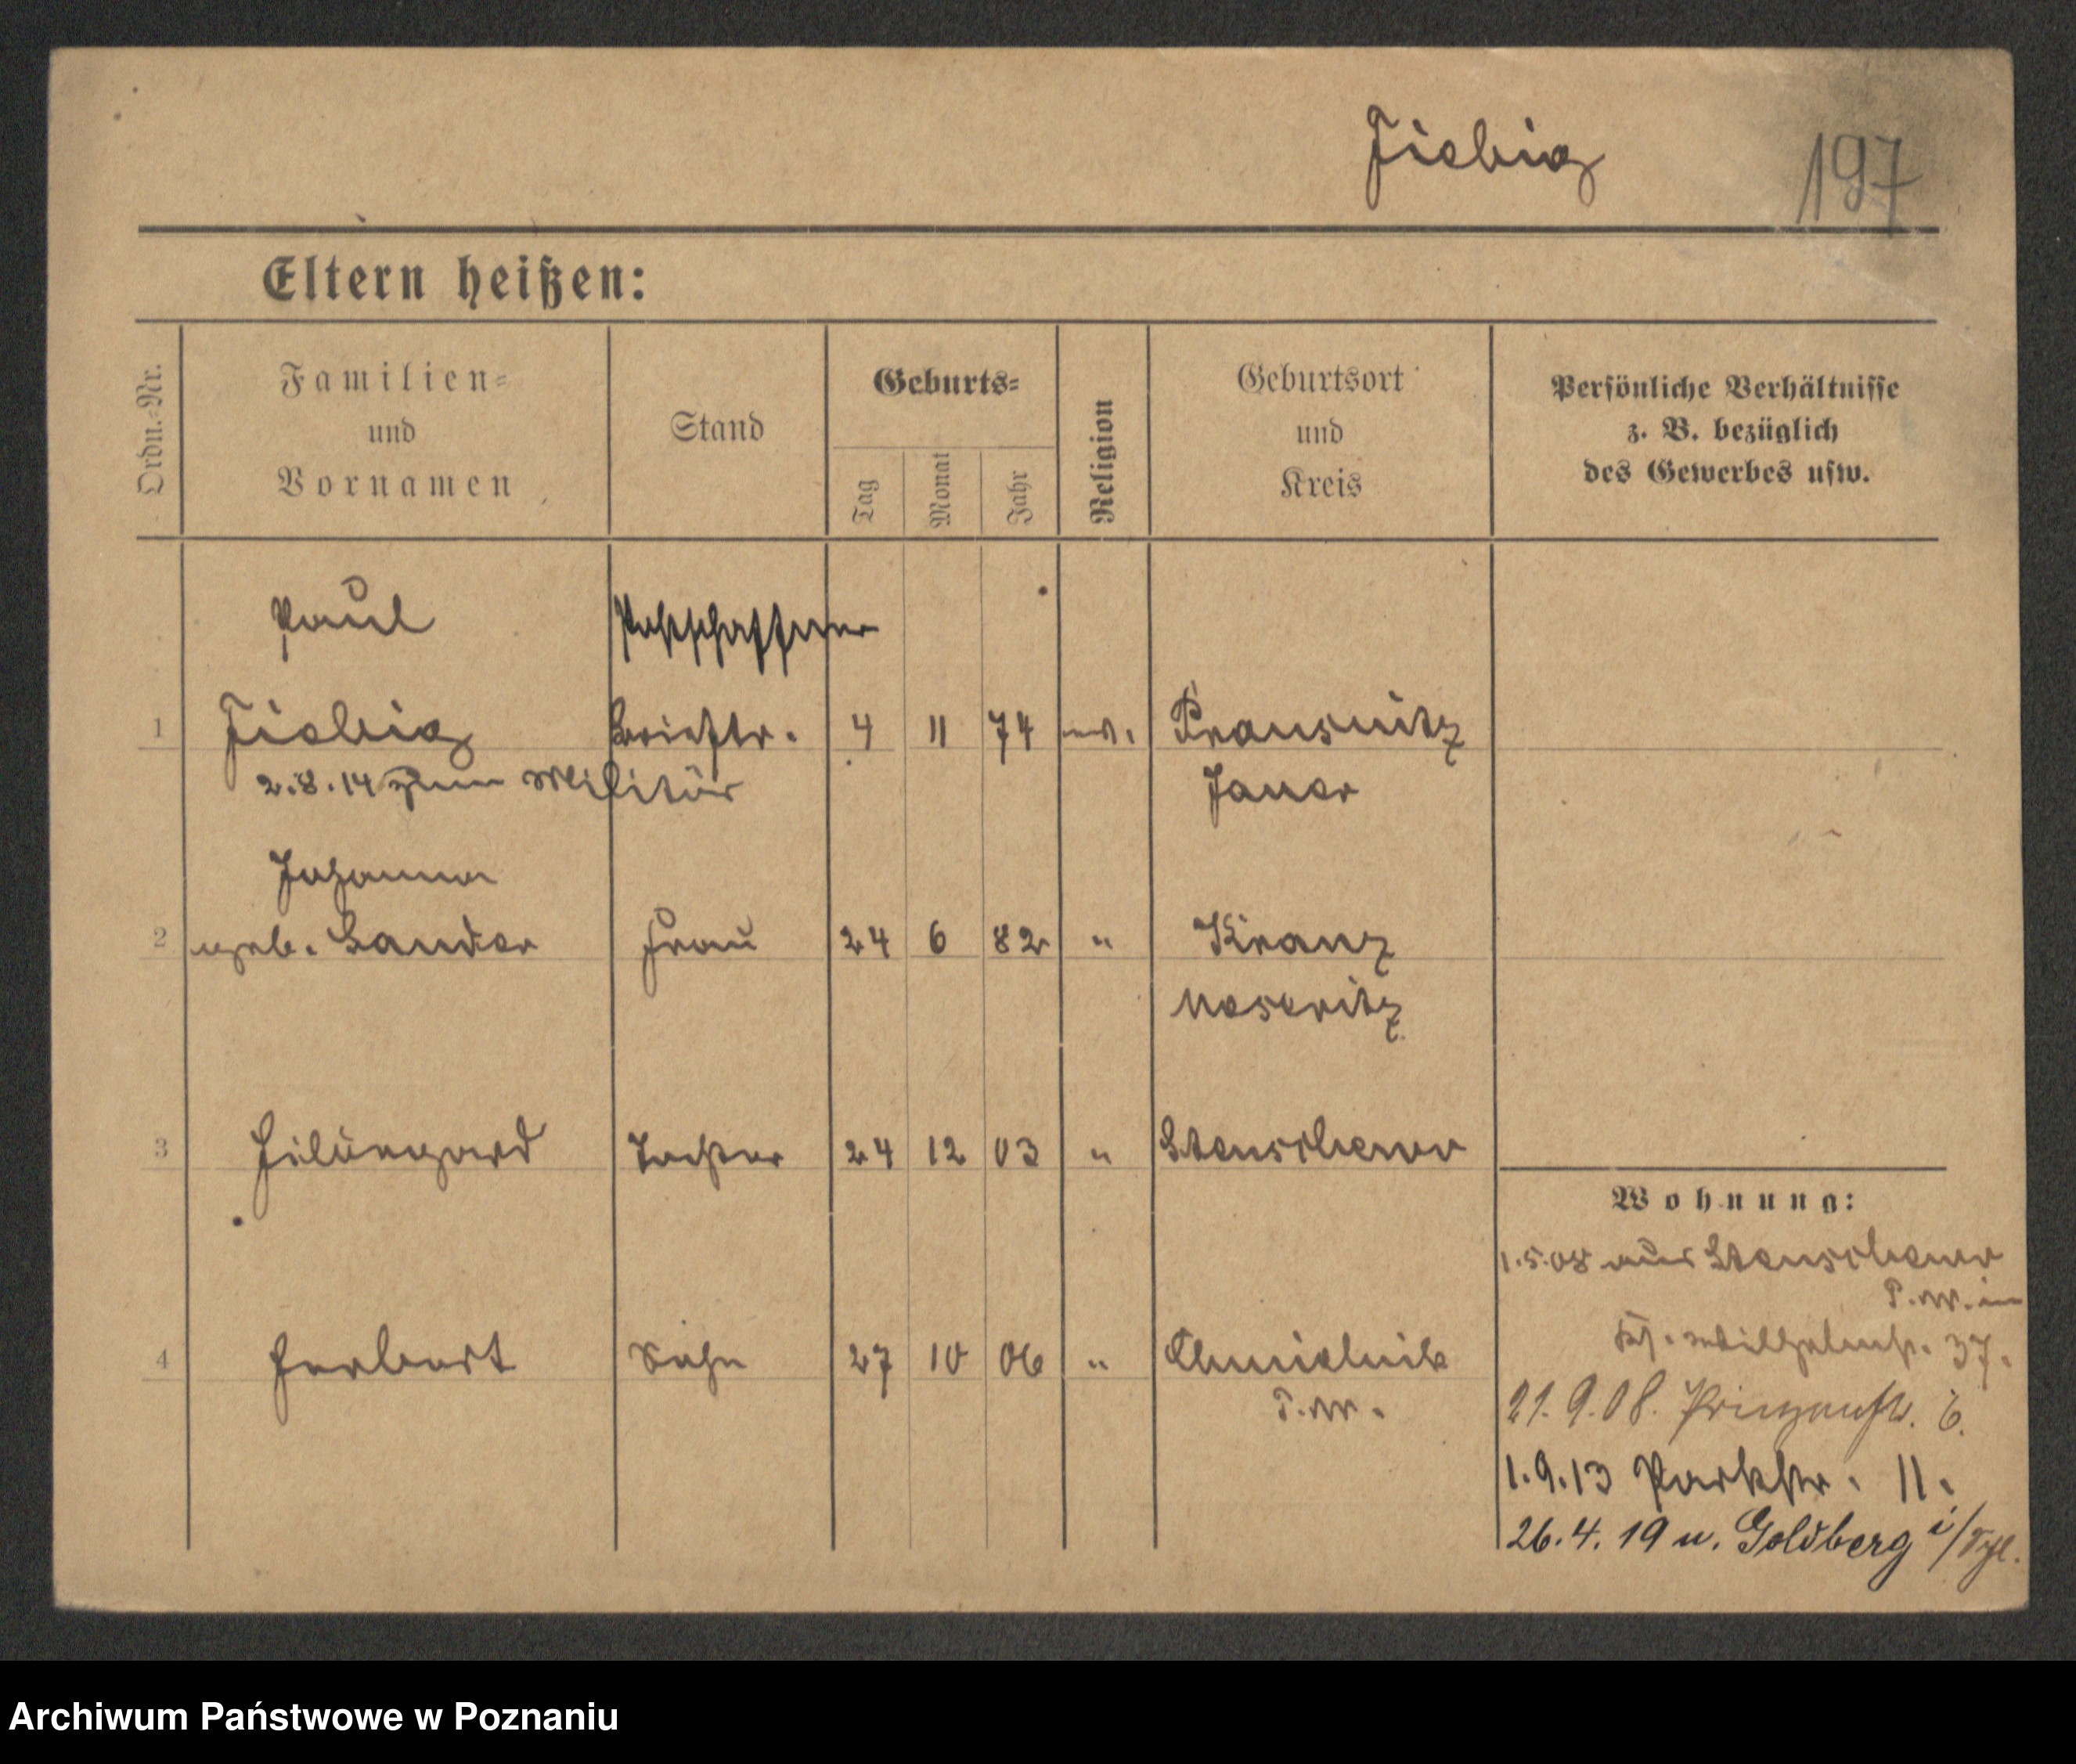 Fiebig
197
Eltern heißen:
Ordn.-Nr.
Familien-
und
Vornamen
Stand
Geburts-
Tag
Monat
Jahr
Religion
Geburtsort
und
Kreis
Persönliche Verhältnisse
z. B. bezüglich
des Gewerbes usw.
Paul Postschaffner
1 Fiebig Brieftr. 4 11 74 ev. Prausnitz
2.8.14 zum Militär Jauer
Johanna
2 geb. Sander Frau 24 6 82 " Kranz
Meseritz
3 Hildegard Tochter 24 12 03 " Stenschewo
4 Herbert Sohn 27 10 06 " Chmielnik
P.W.
Wohnung:
1.5.08 aus Stenschewo
P.W. in
Wilhelmstr. 37.
21.9.08. Prinzenstr. 6.
1.9.13 Parkstr. 11.
26.4.19 n. Goldberg i/
Archiwum Państwowe w Poznaniu